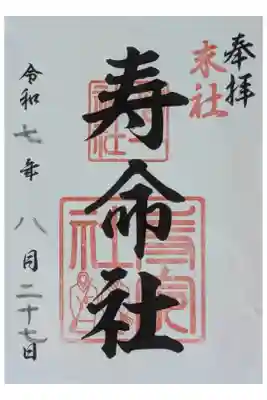 奉拝
末社
寿命社
令和七年八月二十七日